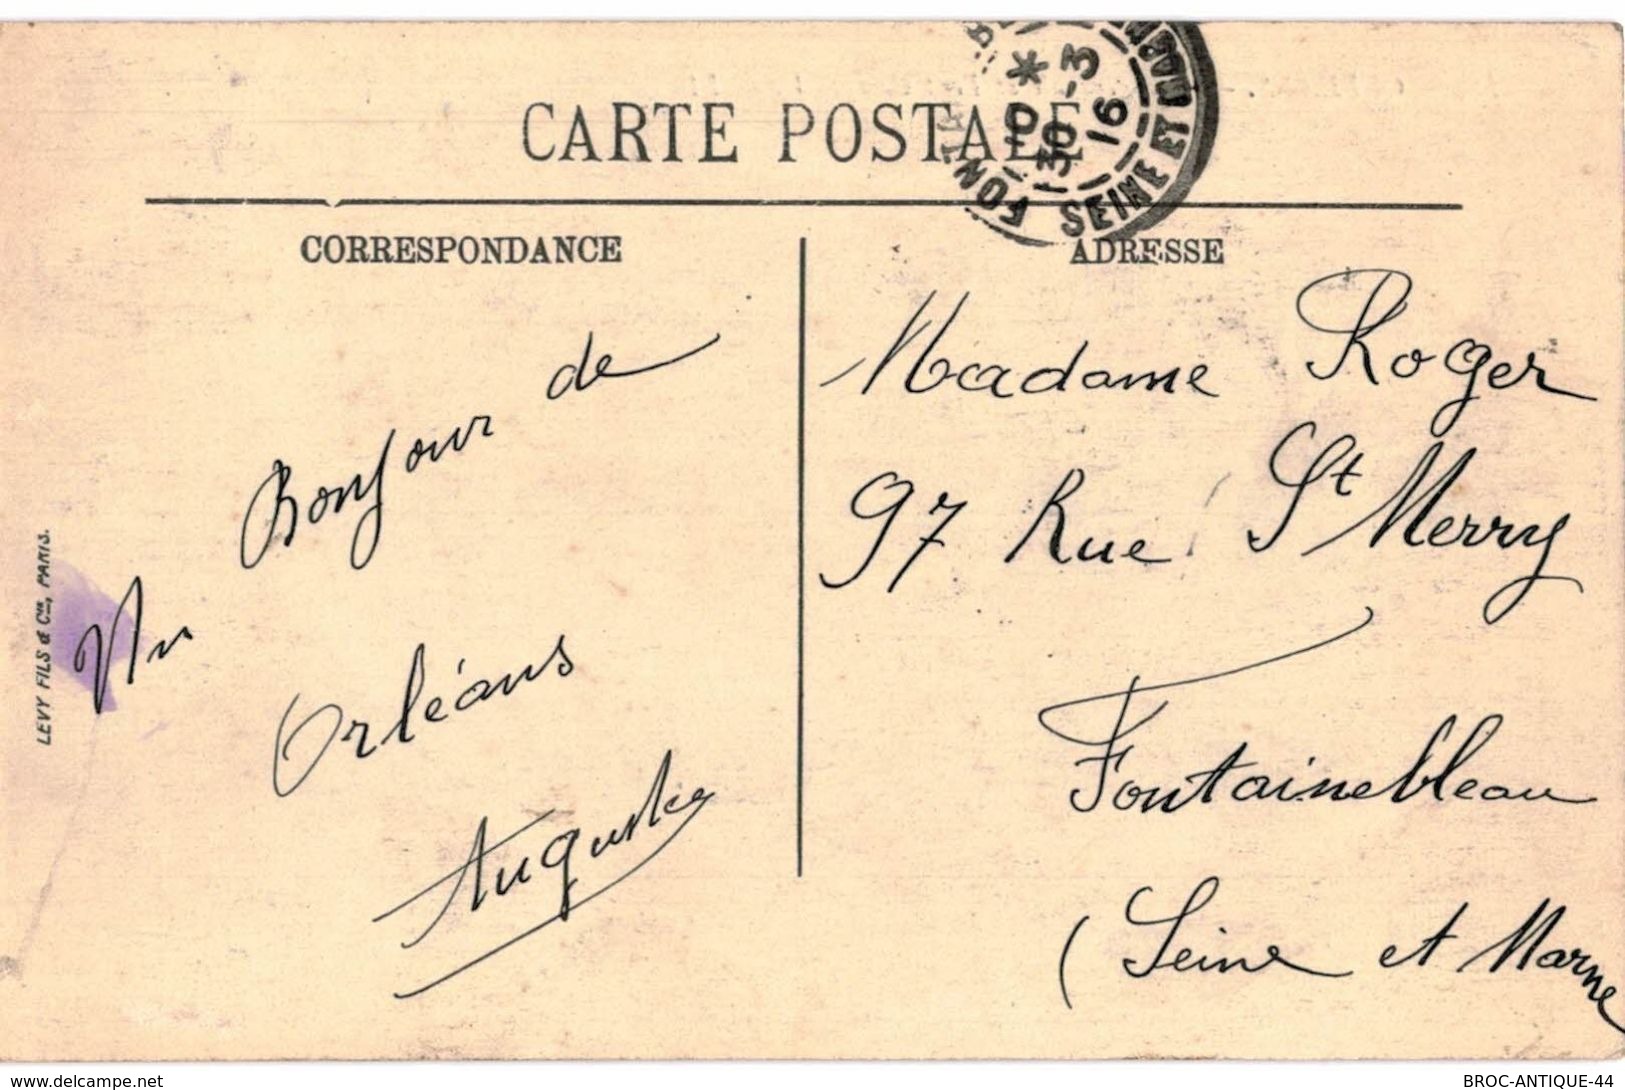 CARTE POSTALE
FONTAINEBLEAU
10 *
30 -3
16
SEINE ET MARNE
CORRESPONDANCE
ADRESSE
Un Bonjour de
Orléans
Auguste
Madame Roger
97 Rue St Merry
Fontainebleau
(Seine et Marne
LEVY FILS & Cie, PARIS.
www.delcampe.net
BROC-ANTIQUE-44